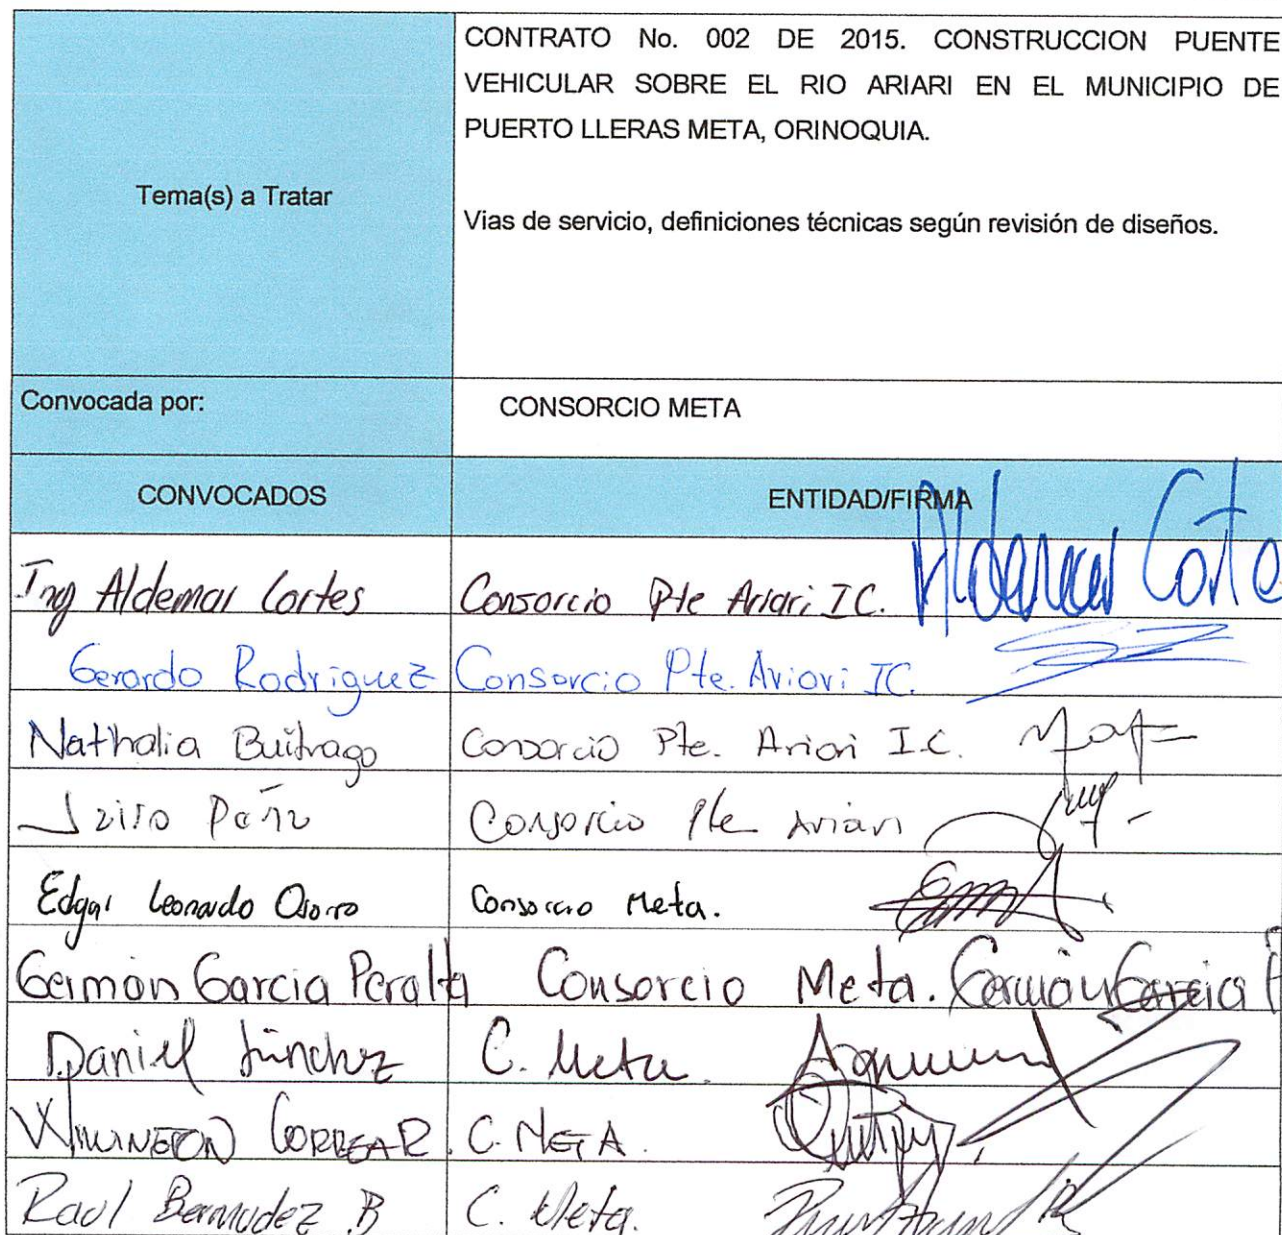 Tema(s) a Tratar
CONTRATO No. 002 DE 2015. CONSTRUCCION PUENTE
VEHICULAR SOBRE EL RIO ARIARI EN EL MUNICIPIO DE
PUERTO LLERAS META, ORINOQUIA.
Vias de servicio, definiciones técnicas según revisión de diseños.
Convocada por: CONSORCIO META
CONVOCADOS ENTIDAD/FIRMA
Ing Aldemar Cortes Consorcio Pte Ariari IC. Aldemar Corte
Gerardo Rodriguez Consorcio Pte. Ariari IC.
Nathalia Buitrago Consorcio Pte. Ariari I.C.
Consorcio Pte Ariari
Edgar Leonardo Consorcio Meta.
German Garcia Peralta Consorcio Meta. Germán Garcia P
Daniel Sánchez C. Meta.
C. META.
Raul Bermudez B C. Meta.